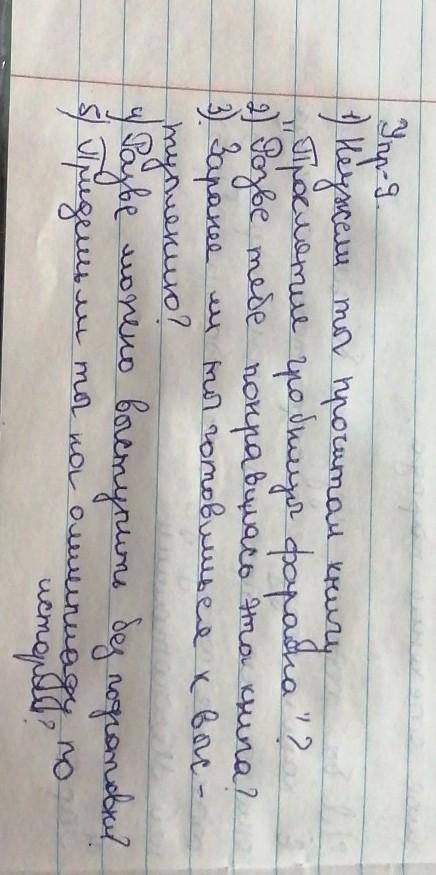 Упр-9.
1) Неужели ты прочитал книгу
"Проклятие гробницы фараона"?
2) Разве тебе понравилась эта книга?
3) Заранее ли ты готовишься к выс-
туплению?
4) Разве можно выступить без подготовки?
5) Придешь ли ты на олимпиаду по
истории?